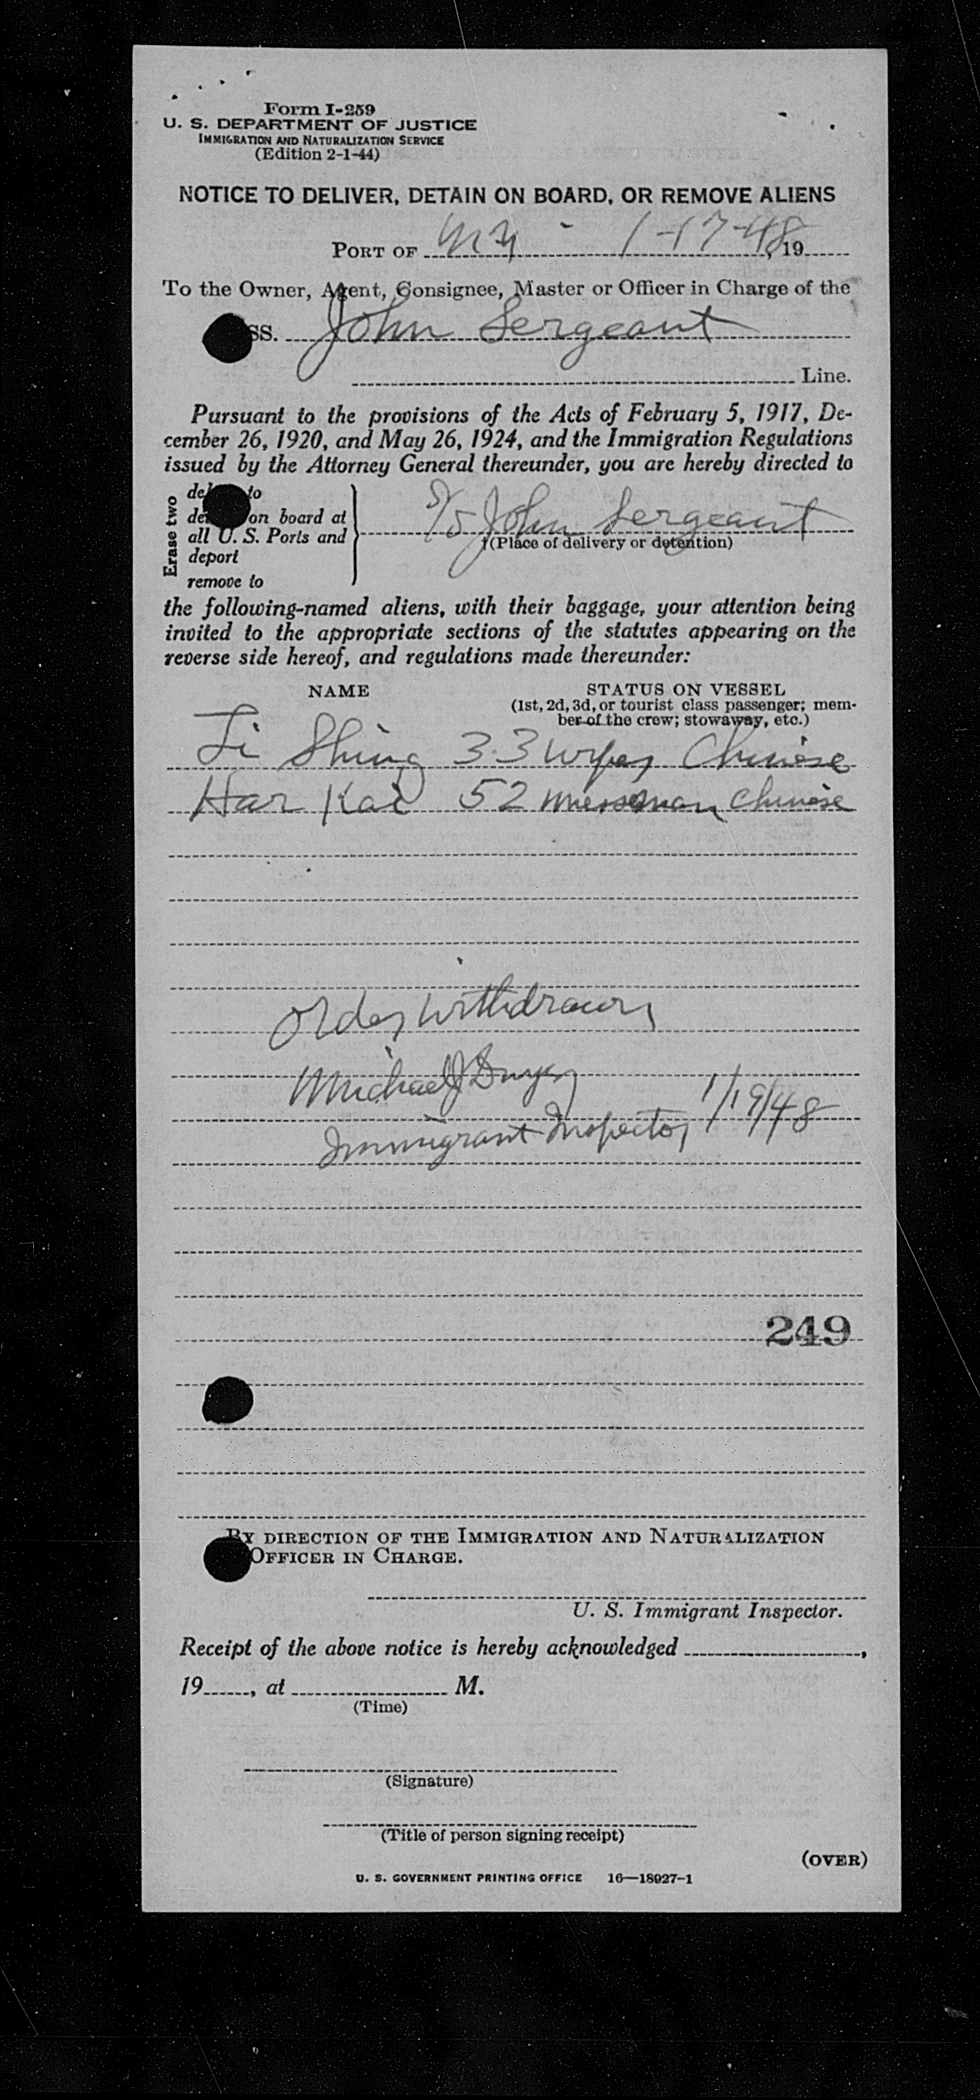 Form I-259
U. S. DEPARTMENT OF JUSTICE
IMMIGRATION AND NATURALIZATION SERVICE
(Edition 2-1-44)
NOTICE TO DELIVER, DETAIN ON BOARD, OR REMOVE ALIENS
PORT OF NY - 1-17-48, 19
To the Owner, Agent, Consignee, Master or Officer in Charge of the
SS. John Sergeant
Line.
Pursuant to the provisions of the Acts of February 5, 1917, De-
cember 26, 1920, and May 26, 1924, and the Immigration Regulations
issued by the Attorney General thereunder, you are hereby directed to
Erase two
to
on board at
all U. S. Ports and
deport
remove to
S/S John Sergeant
(Place of delivery or detention)
the following-named aliens, with their baggage, your attention being
invited to the appropriate sections of the statutes appearing on the
reverse side hereof, and regulations made thereunder:
NAME
STATUS ON VESSEL
(1st, 2d, 3d, or tourist class passenger; mem-
ber of the crew; stowaway, etc.)
Li Shing 33 Wiper Chinese
Har Kai 52 messman Chinese
Order Withdrawn
Michael J Dwyer
Immigrant Inspector 1/19/48
249
BY DIRECTION OF THE IMMIGRATION AND NATURALIZATION
OFFICER IN CHARGE.
U. S. Immigrant Inspector.
Receipt of the above notice is hereby acknowledged ,
19 , at M.
(Time)
(Signature)
(Title of person signing receipt)
(OVER)
U. S. GOVERNMENT PRINTING OFFICE 16—18927-1